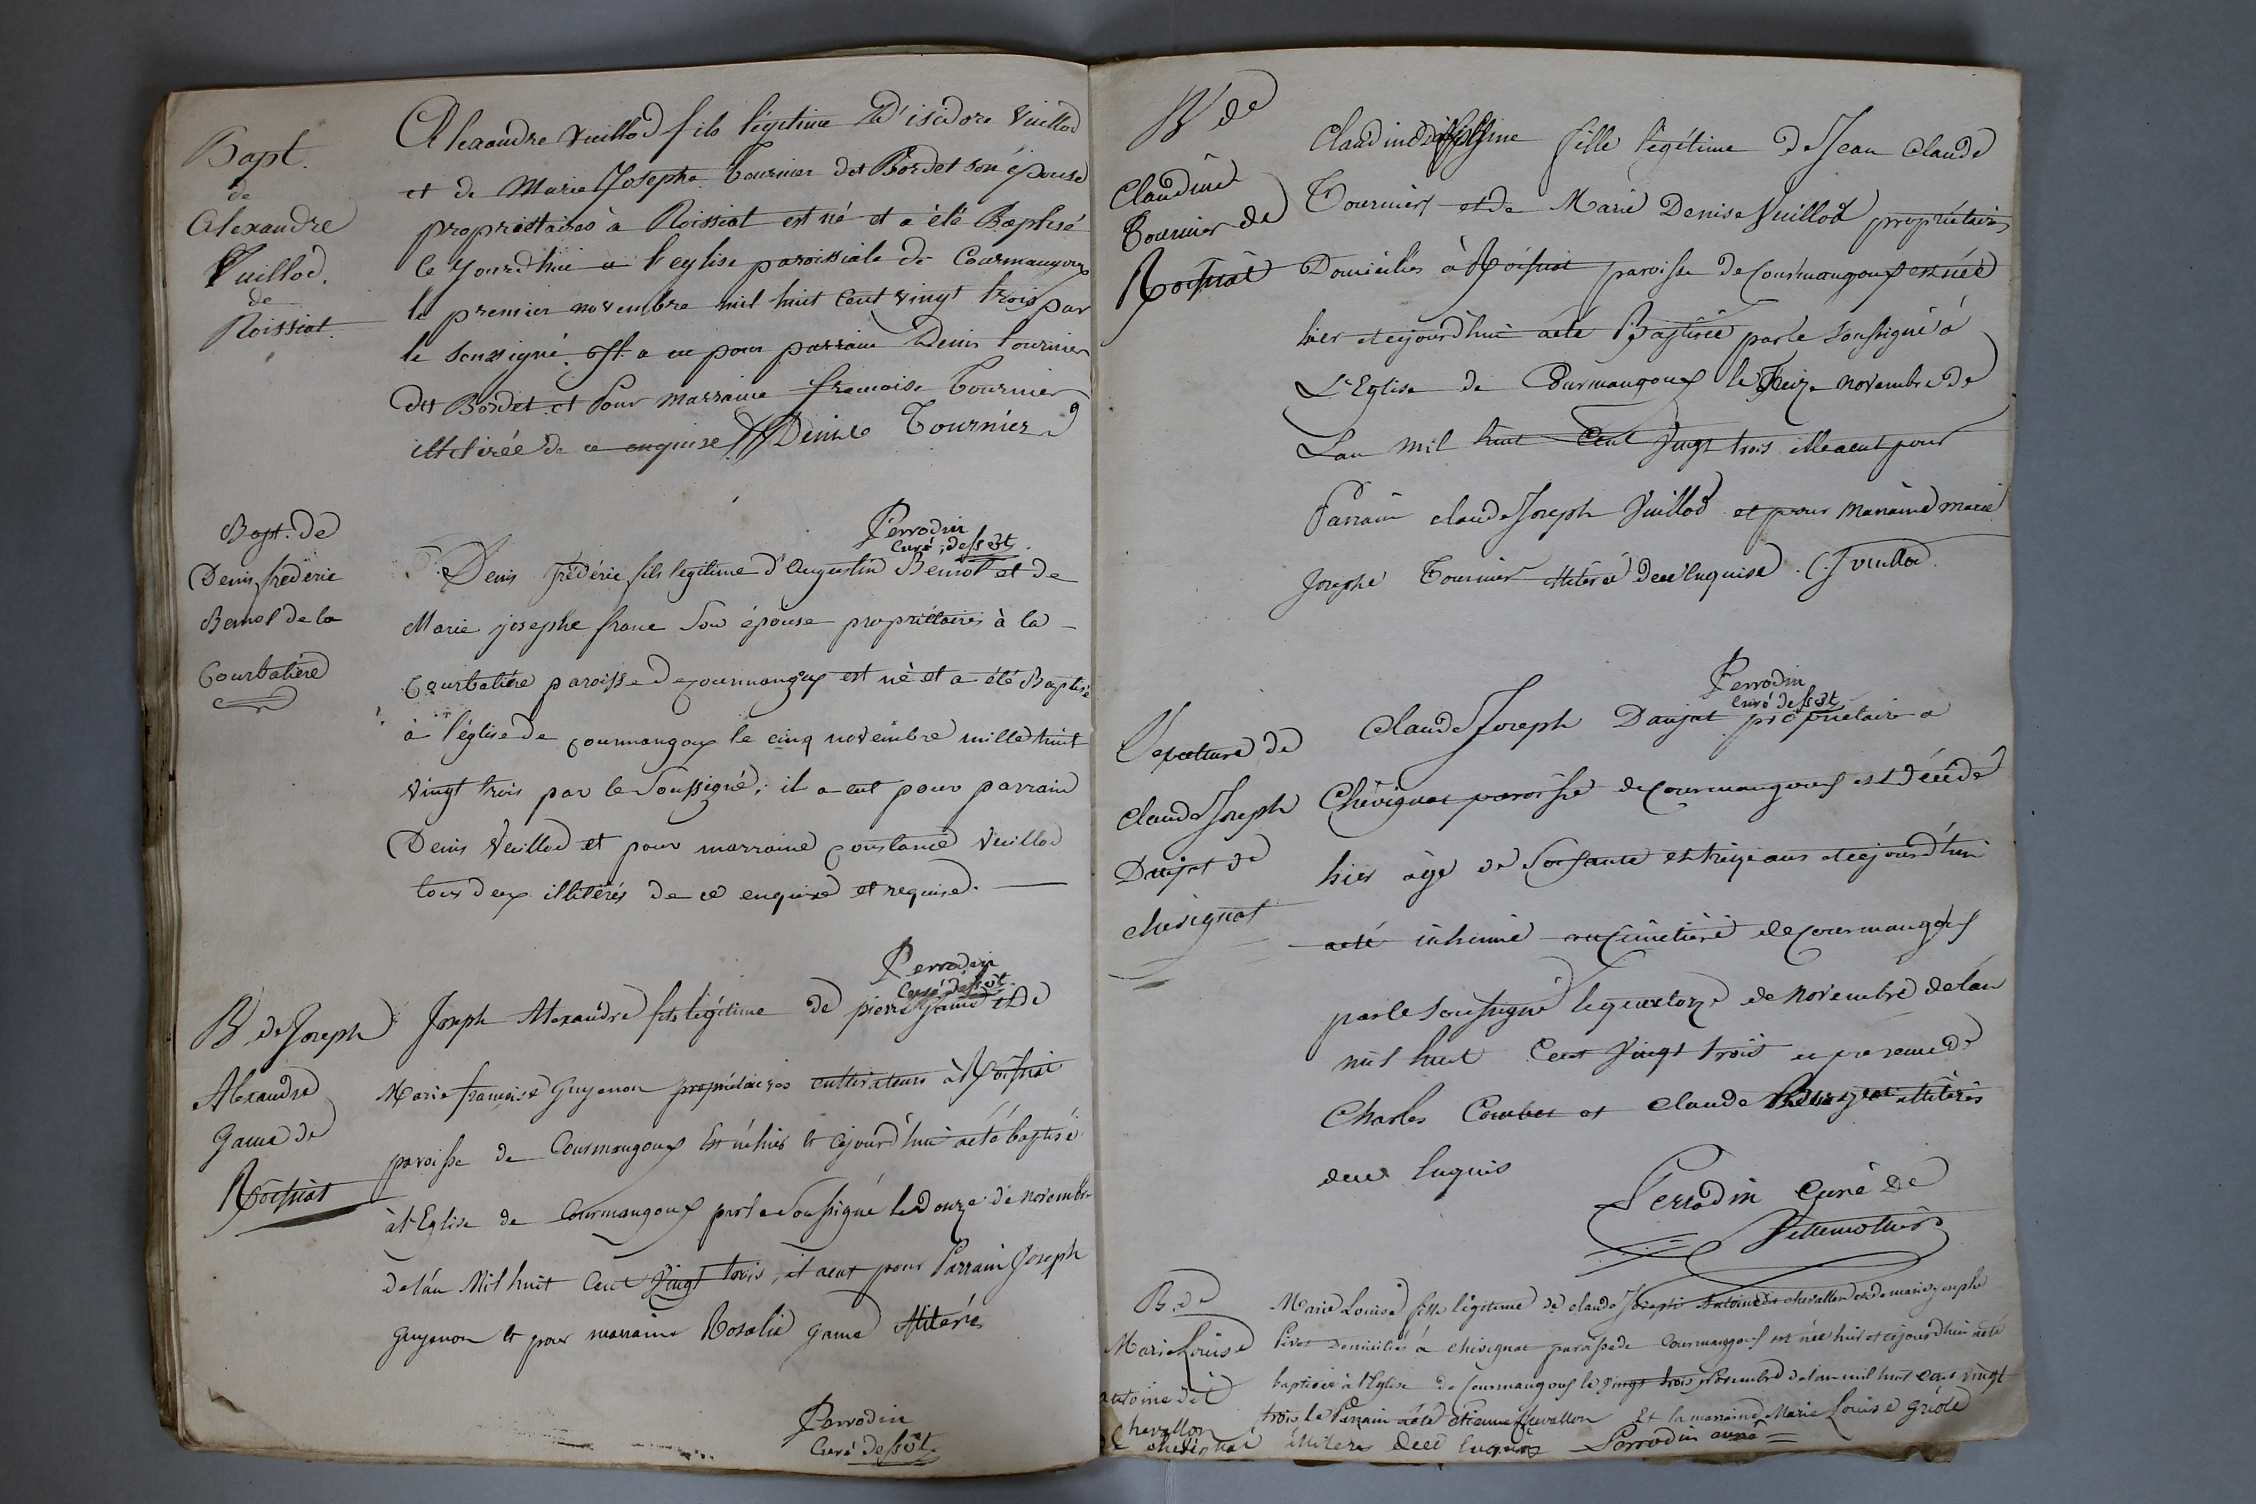 Bapt.
de
Alexandre
Vuillod.
de
Roissiat.
Alexandre Vuillod fils légitime D'isidore Vuillod
et de Marie Josephe Tournier det Bordet son épouse
propriétaires à Roissiat est né et a été Baptisé
le jourdhui a l'eglise paroissiale de Courmangoux
le premier novembre mil huit Cent vingt trois par
le soussigné. Il a eu pour parrain Denis Tournier
det Bordet et Pour marraine francoise Tournier
illitirée de ce enquise Denis Tournier
Perrodin
Curé, dessst.
Bapt. de
Denis frédéric
Bernot de la
Courbatière
Denis frédéric fils légitime d'augustin Bernot et de
Marie josephe franc Son épouse propriétaires à la
Courbatière paroisse de courmangoux est né et a été Baptisé
à l'église de courmangoux le cinq novembre mille huit
vingt trois par le Soussigné; il a eut pour parrain
Denis Vuillod et pour marraine constance Vuillod
tous deux illitérés de ce enquise et requise.
Perrodin
Curé dessst.
B de Joseph
Alexandre
Game de
Roissiat
Joseph Alexandre fils légitime de pierre Game et de
Marie françoise Guyenon propriétaires cultivateurs à Roissiat
paroisse de Courmangoux Est né hier et cejourd'hui aété baptisé
à l'Eglise de Courmangoux par le Soussigné le Douze de novembre
de l'an Mil huit Cent Vingt trois, il aeut pour Parrain Joseph
Guyenon et pour marraine Rosalie Game illitérés
Perrodin
Curé dessst.
B de
Claudine
Tournier de
Roissiat
Claudine fille légitime de Jean Claude
Tournier et de Marie Denise Vuillod propriétaires
Domiciliés à Roissiat paroisse de Courmangoux est née
hier et cejourd'hui aété Baptisée par le soussigné à
L'Eglise de Courmangoux le Treize novembre de
L'an mil huit Cent Vingt trois elle aeut pour
Parrain claude Joseph Vuillod et pour Marraine marie
Josephe Tournier illitérée de ce Enquise. C. J vuillod.
Perrodin
Curé dessst.
Sepulture de
Claude Joseph
Daujat de
chevignat
Claude Joseph Daujat propriétaire à
Chevignat paroisse de Courmangoux est Décédé
hier âgé de Soissante et treize ans et cejourd'hui
aété inhumé au Cimetière de Courmangoux
par le Soussigné le quatorze de Novembre de l'an
mil huit Cent Vingt trois en presence de
Charles Combet et Claude illitérés
de ce Enquis
Perrodin Curé de
Villemotier
B. de
Marie Louise
antoine dit
Chevallon
chevignat
Marie Louise fille légitime de claude Joseph Antoine dit chevallon et de marie josephe
Piret Domiciliés à chevignat paroisse de Courmangoux est née hier et cejourd'hui aété
baptisée à l'Eglise de Courmangoux le vingt trois Novembre de l'an mil huit cent vingt
trois le Parrain aété etienne chevallon Et la marraine Marie Louise
illiterés de ce Enquis Perrodin curé